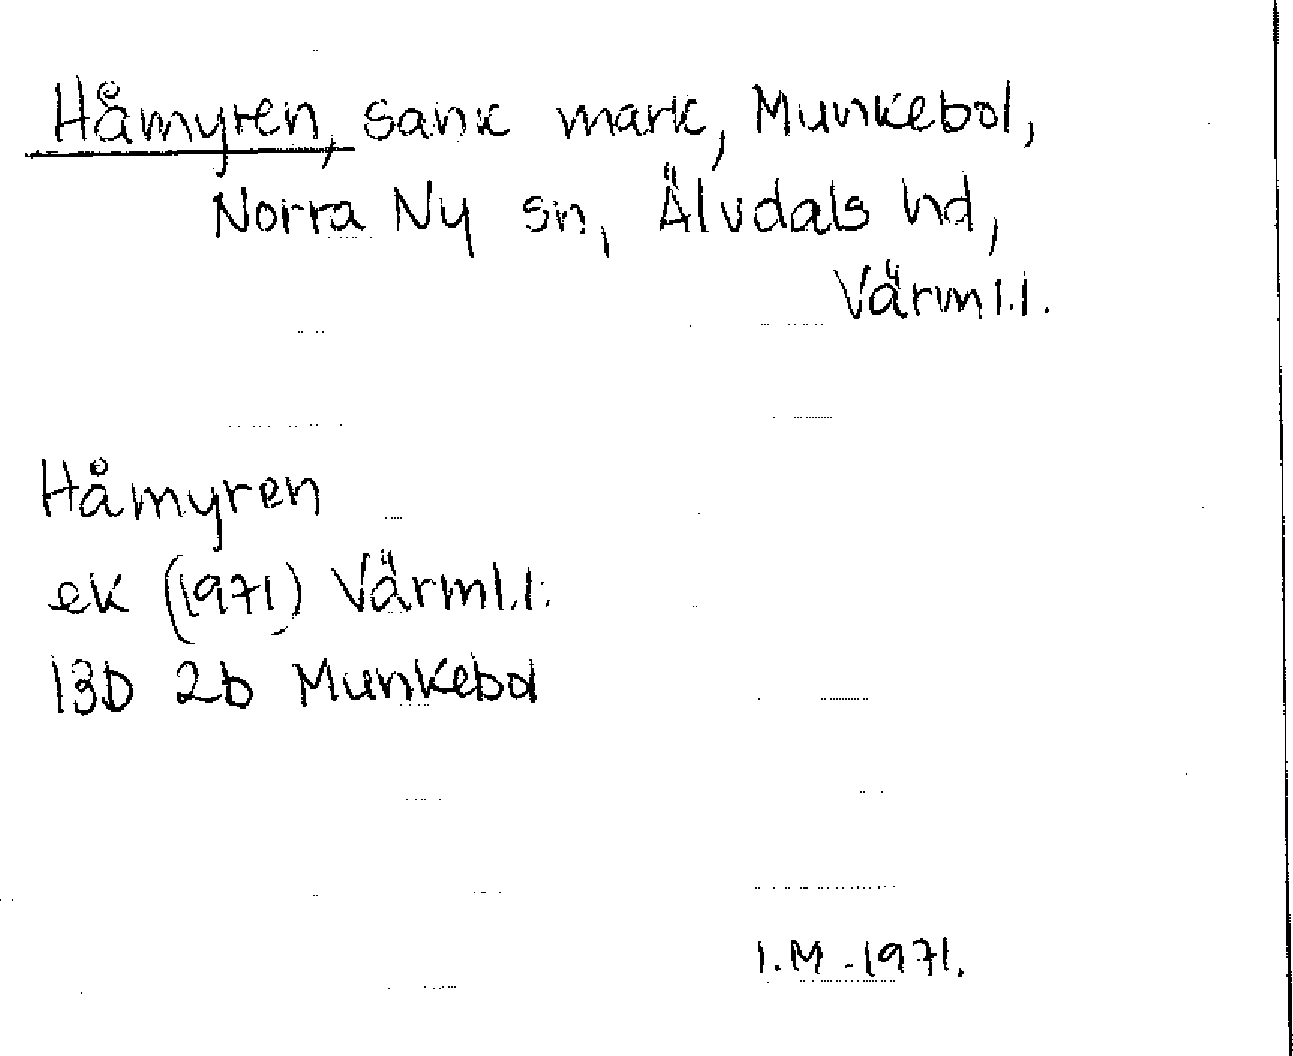 Håmyren, sank mark, Munkebol,
Norra Ny sn, Älvdals hd,
Värml.l.
Håmyren
ek (1971) Värml.l.
13D 2b Munkebol
I.M. 1971.